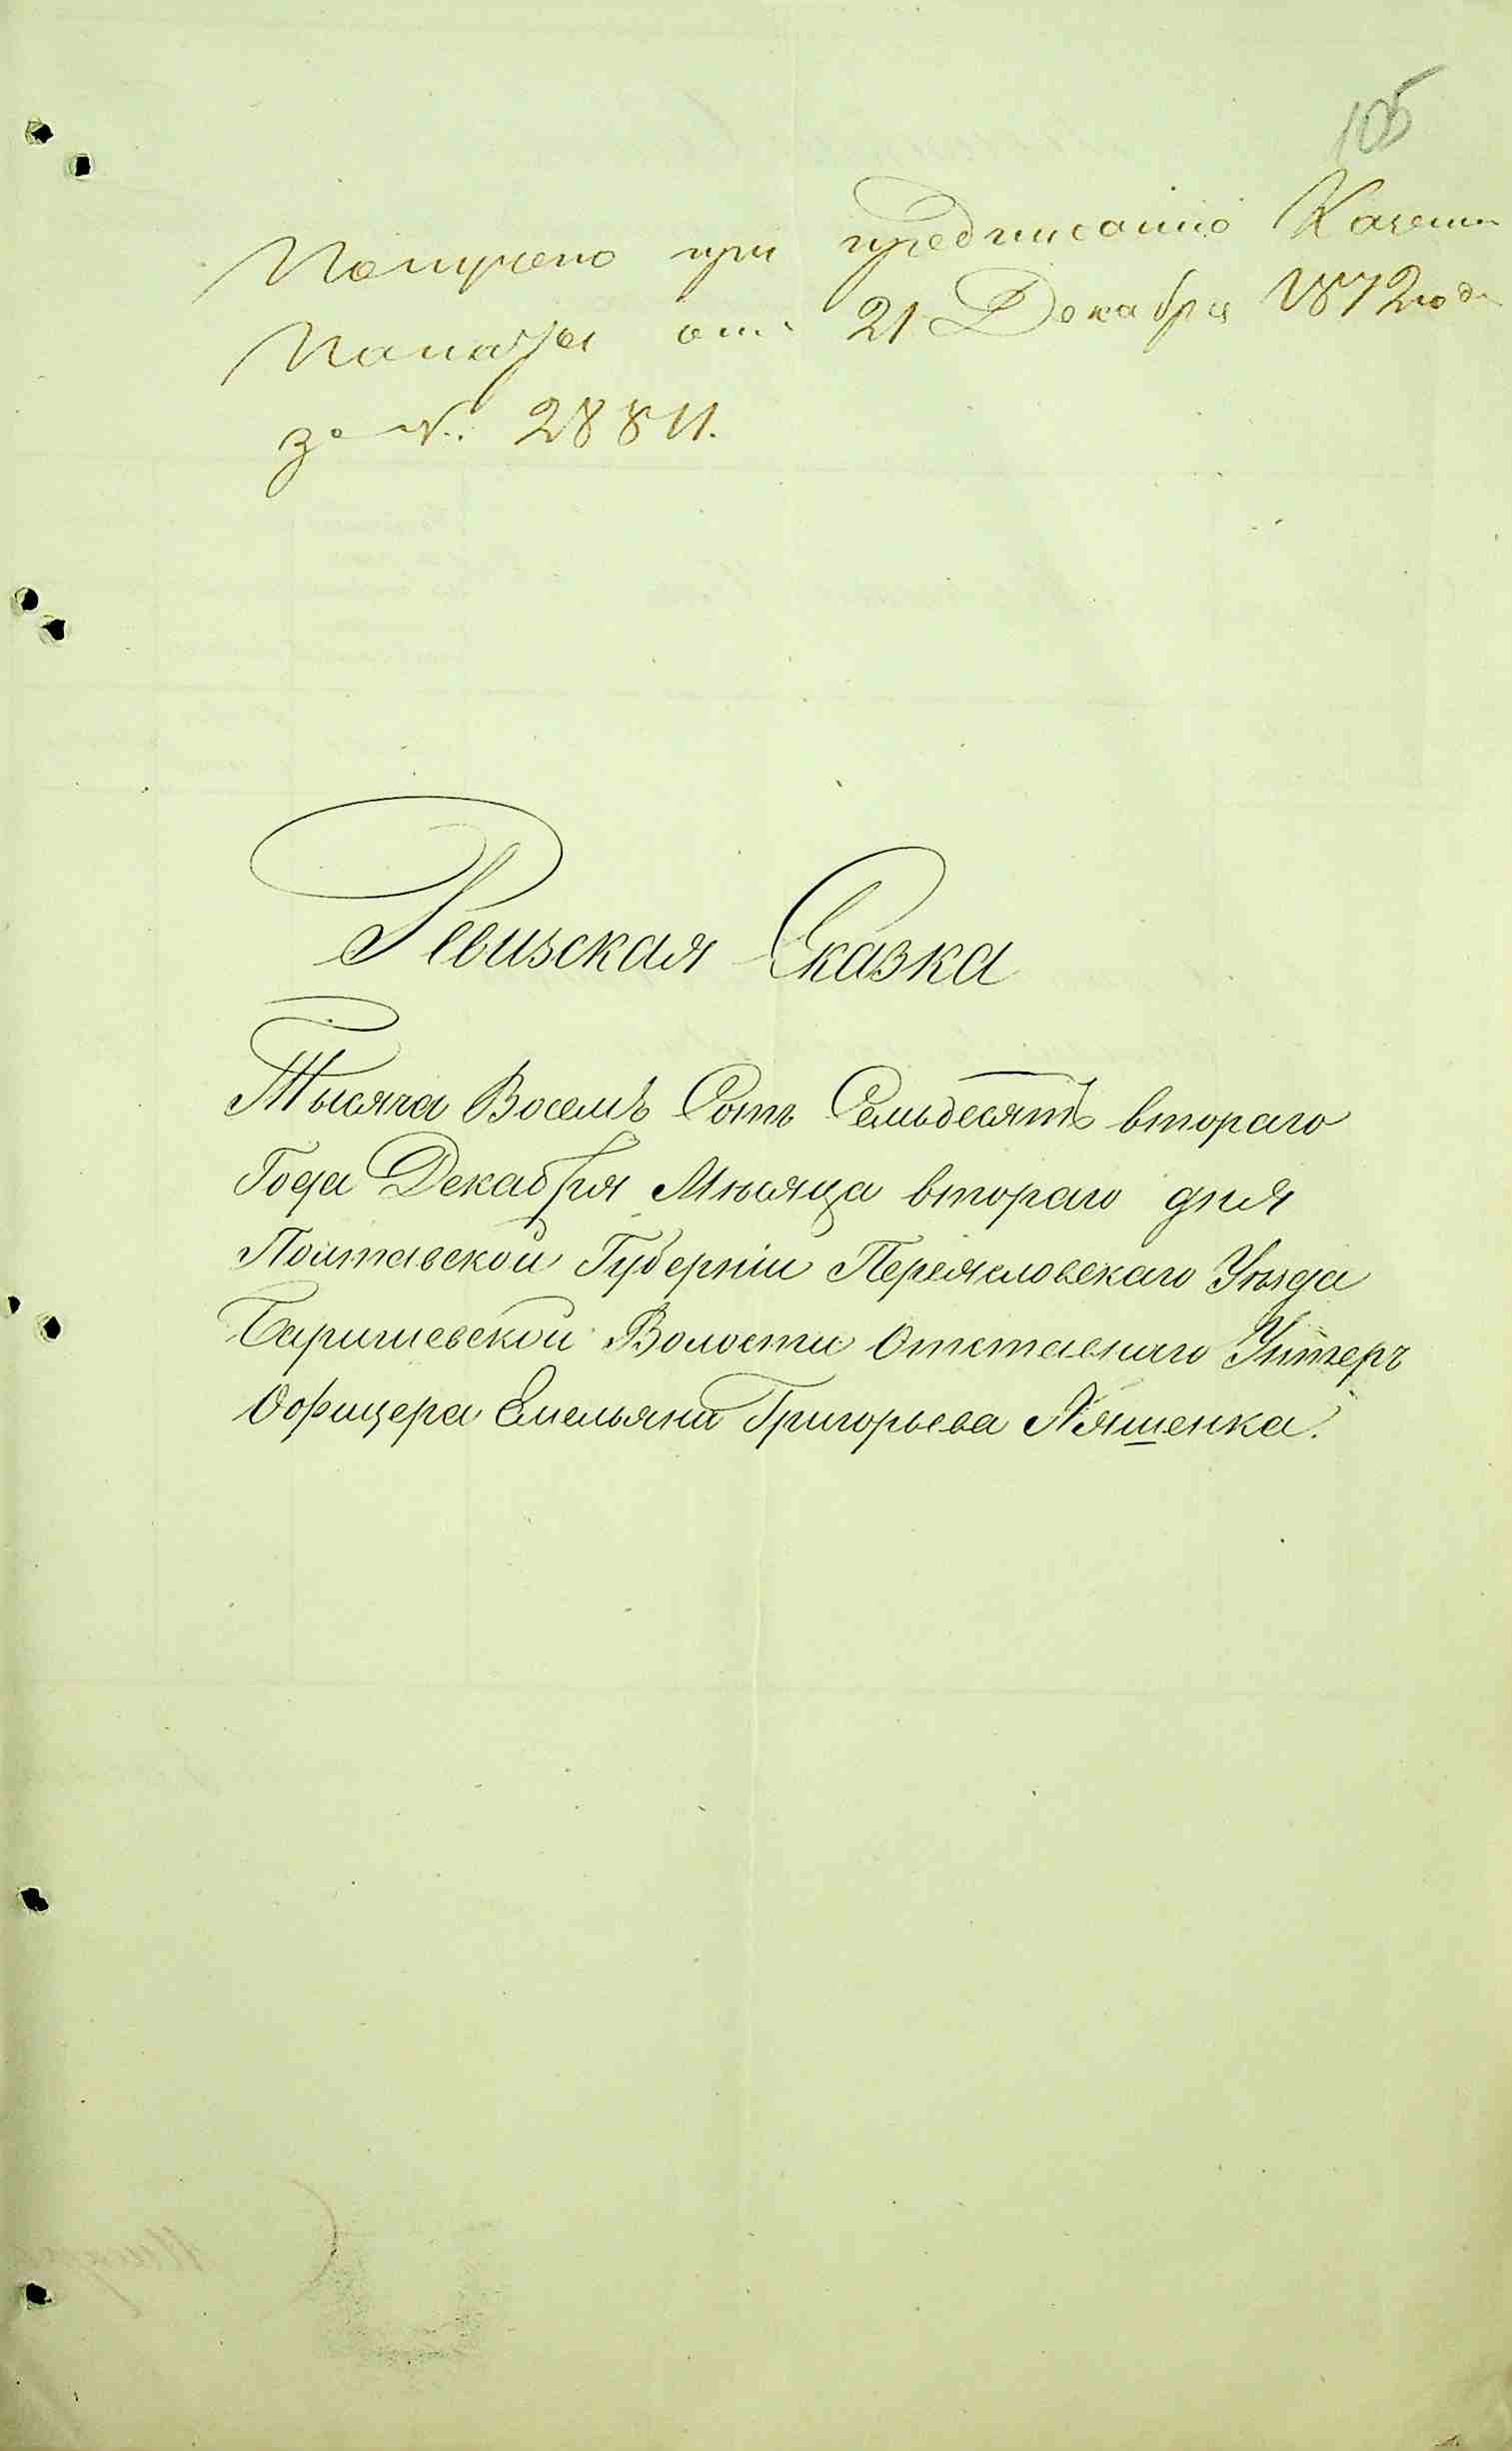 105
Получено при предписании Казенн
Палаты отъ 21 Декабря 1872 года
за №. 28811.
Ревизская Сказка
Тысяча Восемъ Сотъ Семьдесятъ втораго
Года Декабря Мѣсяца втораго дня
Полтавской Губерніи Переясловскаго Уѣзда
Баришевской Волости Отставнаго Унтеръ
Оофицера Емельяна Григорьева Ляшенка.